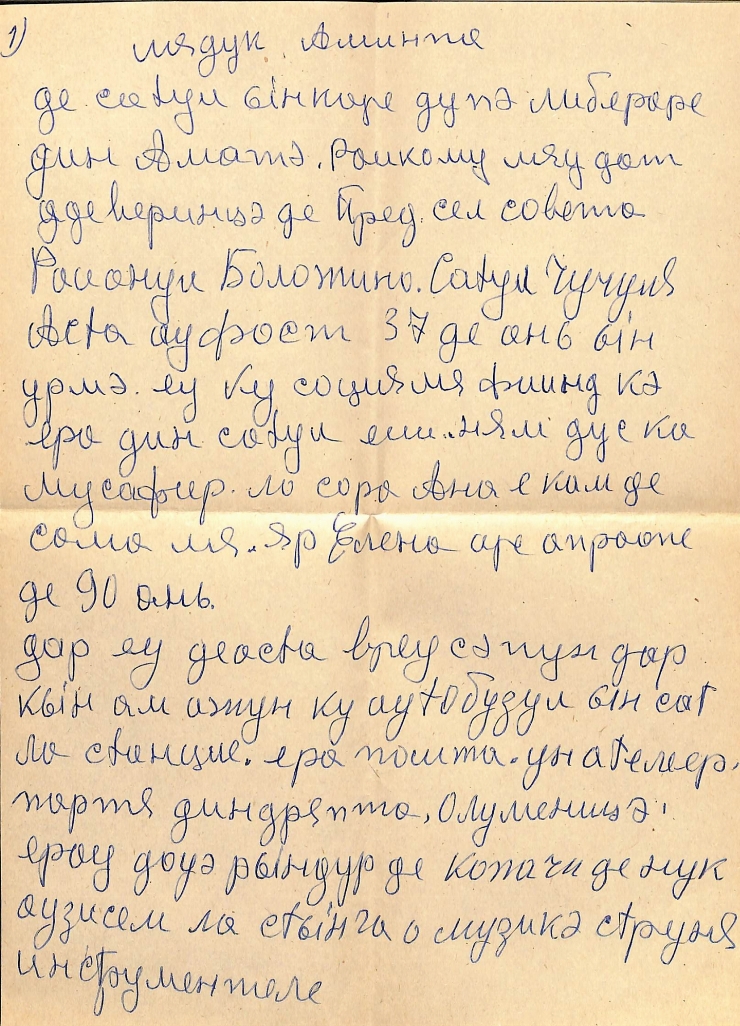 1)
мядук Аминте
де сатул ынкаре дупэ либераре
дин Аматэ. Раикому мяу дат
адеверинцэ де Пред. сел совета
Раионул Болотино. Сатул Чучуля
Аста ау фост 37 де ань ын
урмэ. еу ку социямя фиинд кэ
ера дин сатул еши. ням дус ка
мусафир. ла сора Ана е кам де
сама мя. яр Елена аре апраопе
де 90 ань.
дар еу деаста вреу сэ пун дар
кын ам ажун ку аутобузул ын сат
ла станцие. ера пошта. ун ателиер.
партя диндряпта, олуменицэ.
ерау доуэ рындур де копачи де нук
аузисем ла стынга о музикэ струня
инструментеле